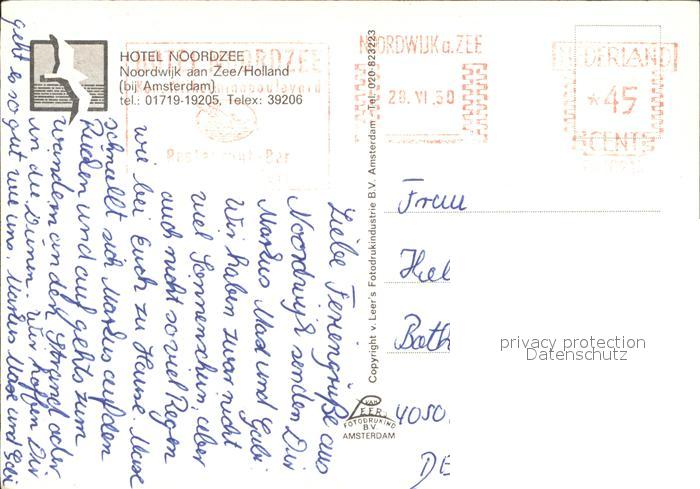 HOTEL NOORDZEE
Noordwijk aan Zee/Holland
(bij Amsterdam)
tel.: 01719-19205, Telex: 39206
HOTEL NOORDZEE
Restaurant-Bar
NOORDWIJK a. ZEE
NEDERLAND
*45
CENT
Liebe Feriengrüße aus
Noordwijk senden Dir
Markus Maxe und Gabi.
Wir haben zwar nicht
viel Sonnenschein, aber
auch nicht so viel Regen
wie bei Euch zu Hause. Maxe
schnellt sich Markus auf den
Rücken und auf gehts zum
wandern an den Strand oder
in die Dünen. Wir hoffen Dir
geht es so gut wie uns. Markus Maxe und Gabi
Copyright v. Leer's Fotodrukindustrie B.V. Amsterdam - Tel. 020-823223
VAN
LEER
FOTODRUKIND
B.V.
AMSTERDAM
Frau
Hel
Both
4050
DE
privacy protection
Datenschutz